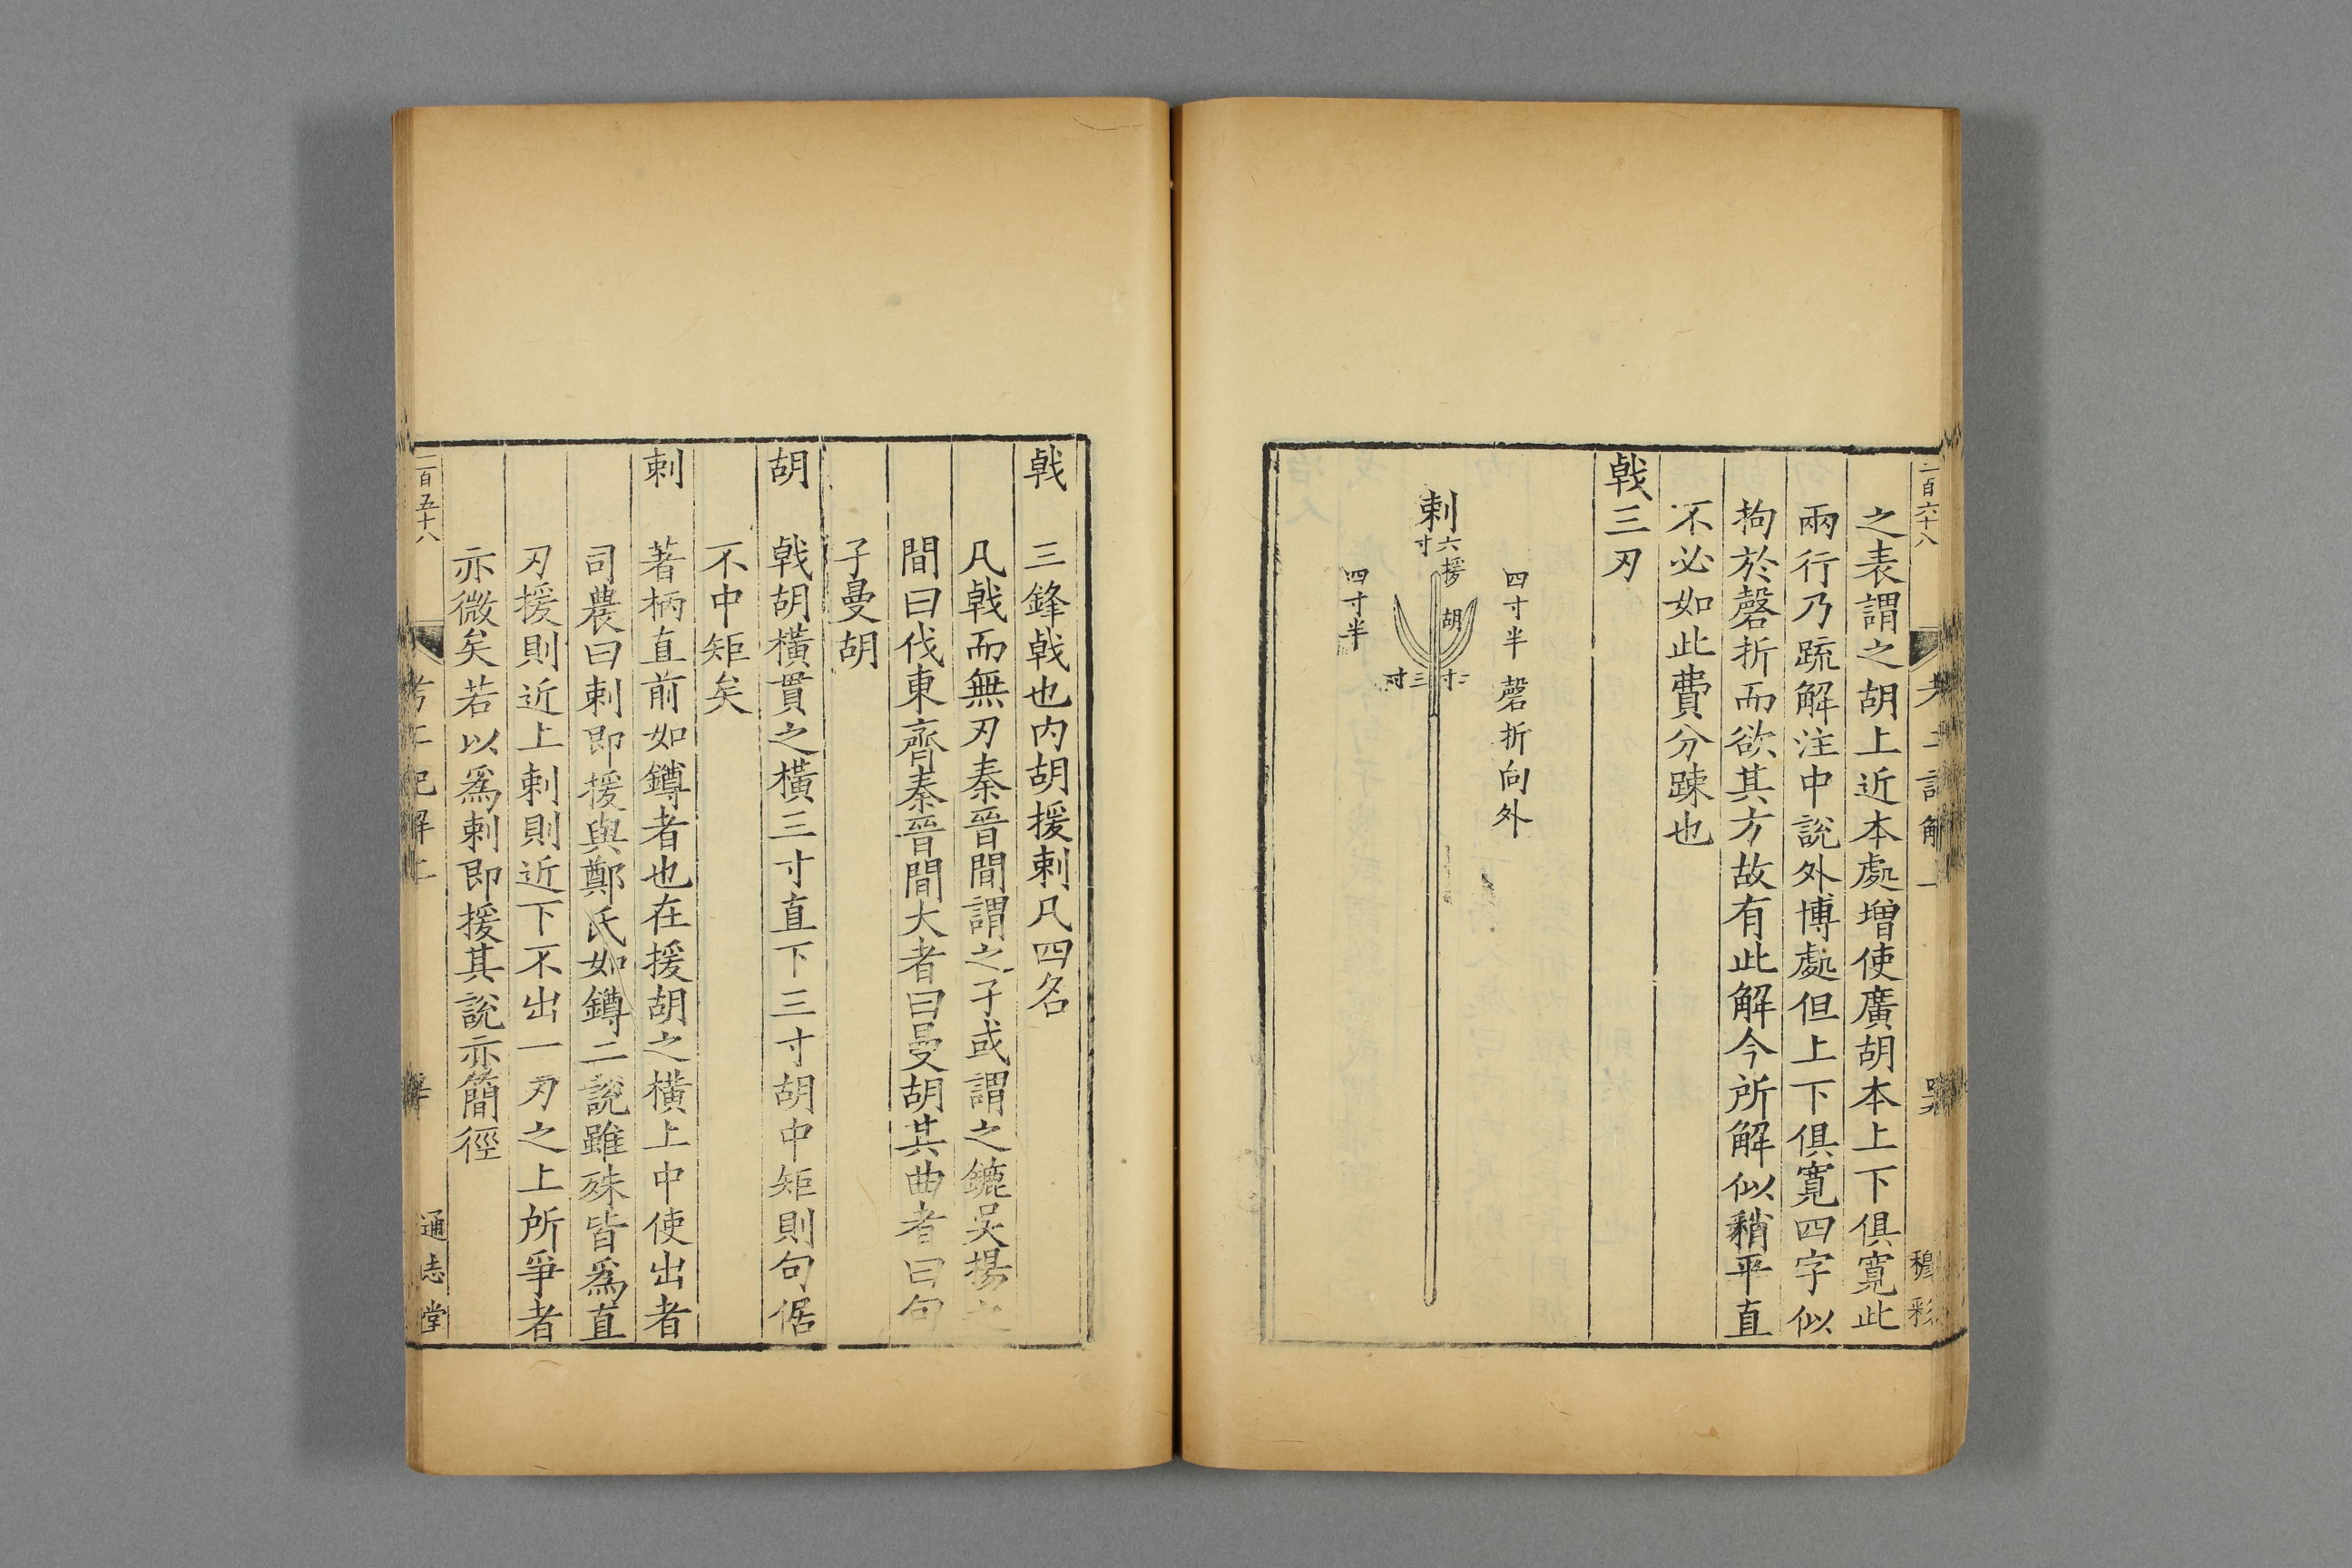 二百六十八
穆彩
之表謂之胡上近本處增使廣胡本上下俱寬此
兩行乃疏解注中說外博處但上下俱寬四字似
拘於磬折而欲其方故有此解今所解似稍平直
不必如此費分踈也
戟三刃
四寸半 磬折向外
援
胡
刺
六寸
二寸
三寸
四寸半
戟 三鋒戟也内胡援刺凡四名
凡戟而無刃秦晉間謂之子或謂之鏕吳揚之
間曰伐東齊秦晉間大者曰曼胡其曲者曰句
子曼胡
胡 戟胡橫貫之橫三寸直下三寸胡中矩則句倨
不中矩矣
刺 著柄直前如鐏者也在援胡之橫上中使出者
司農曰刺即援與鄭氏如鐏二說雖殊皆爲直
刃援則近上刺則近下不出一刃之上所爭者
亦微矣若以爲刺即援其說亦簡徑
二百五十八
通志堂